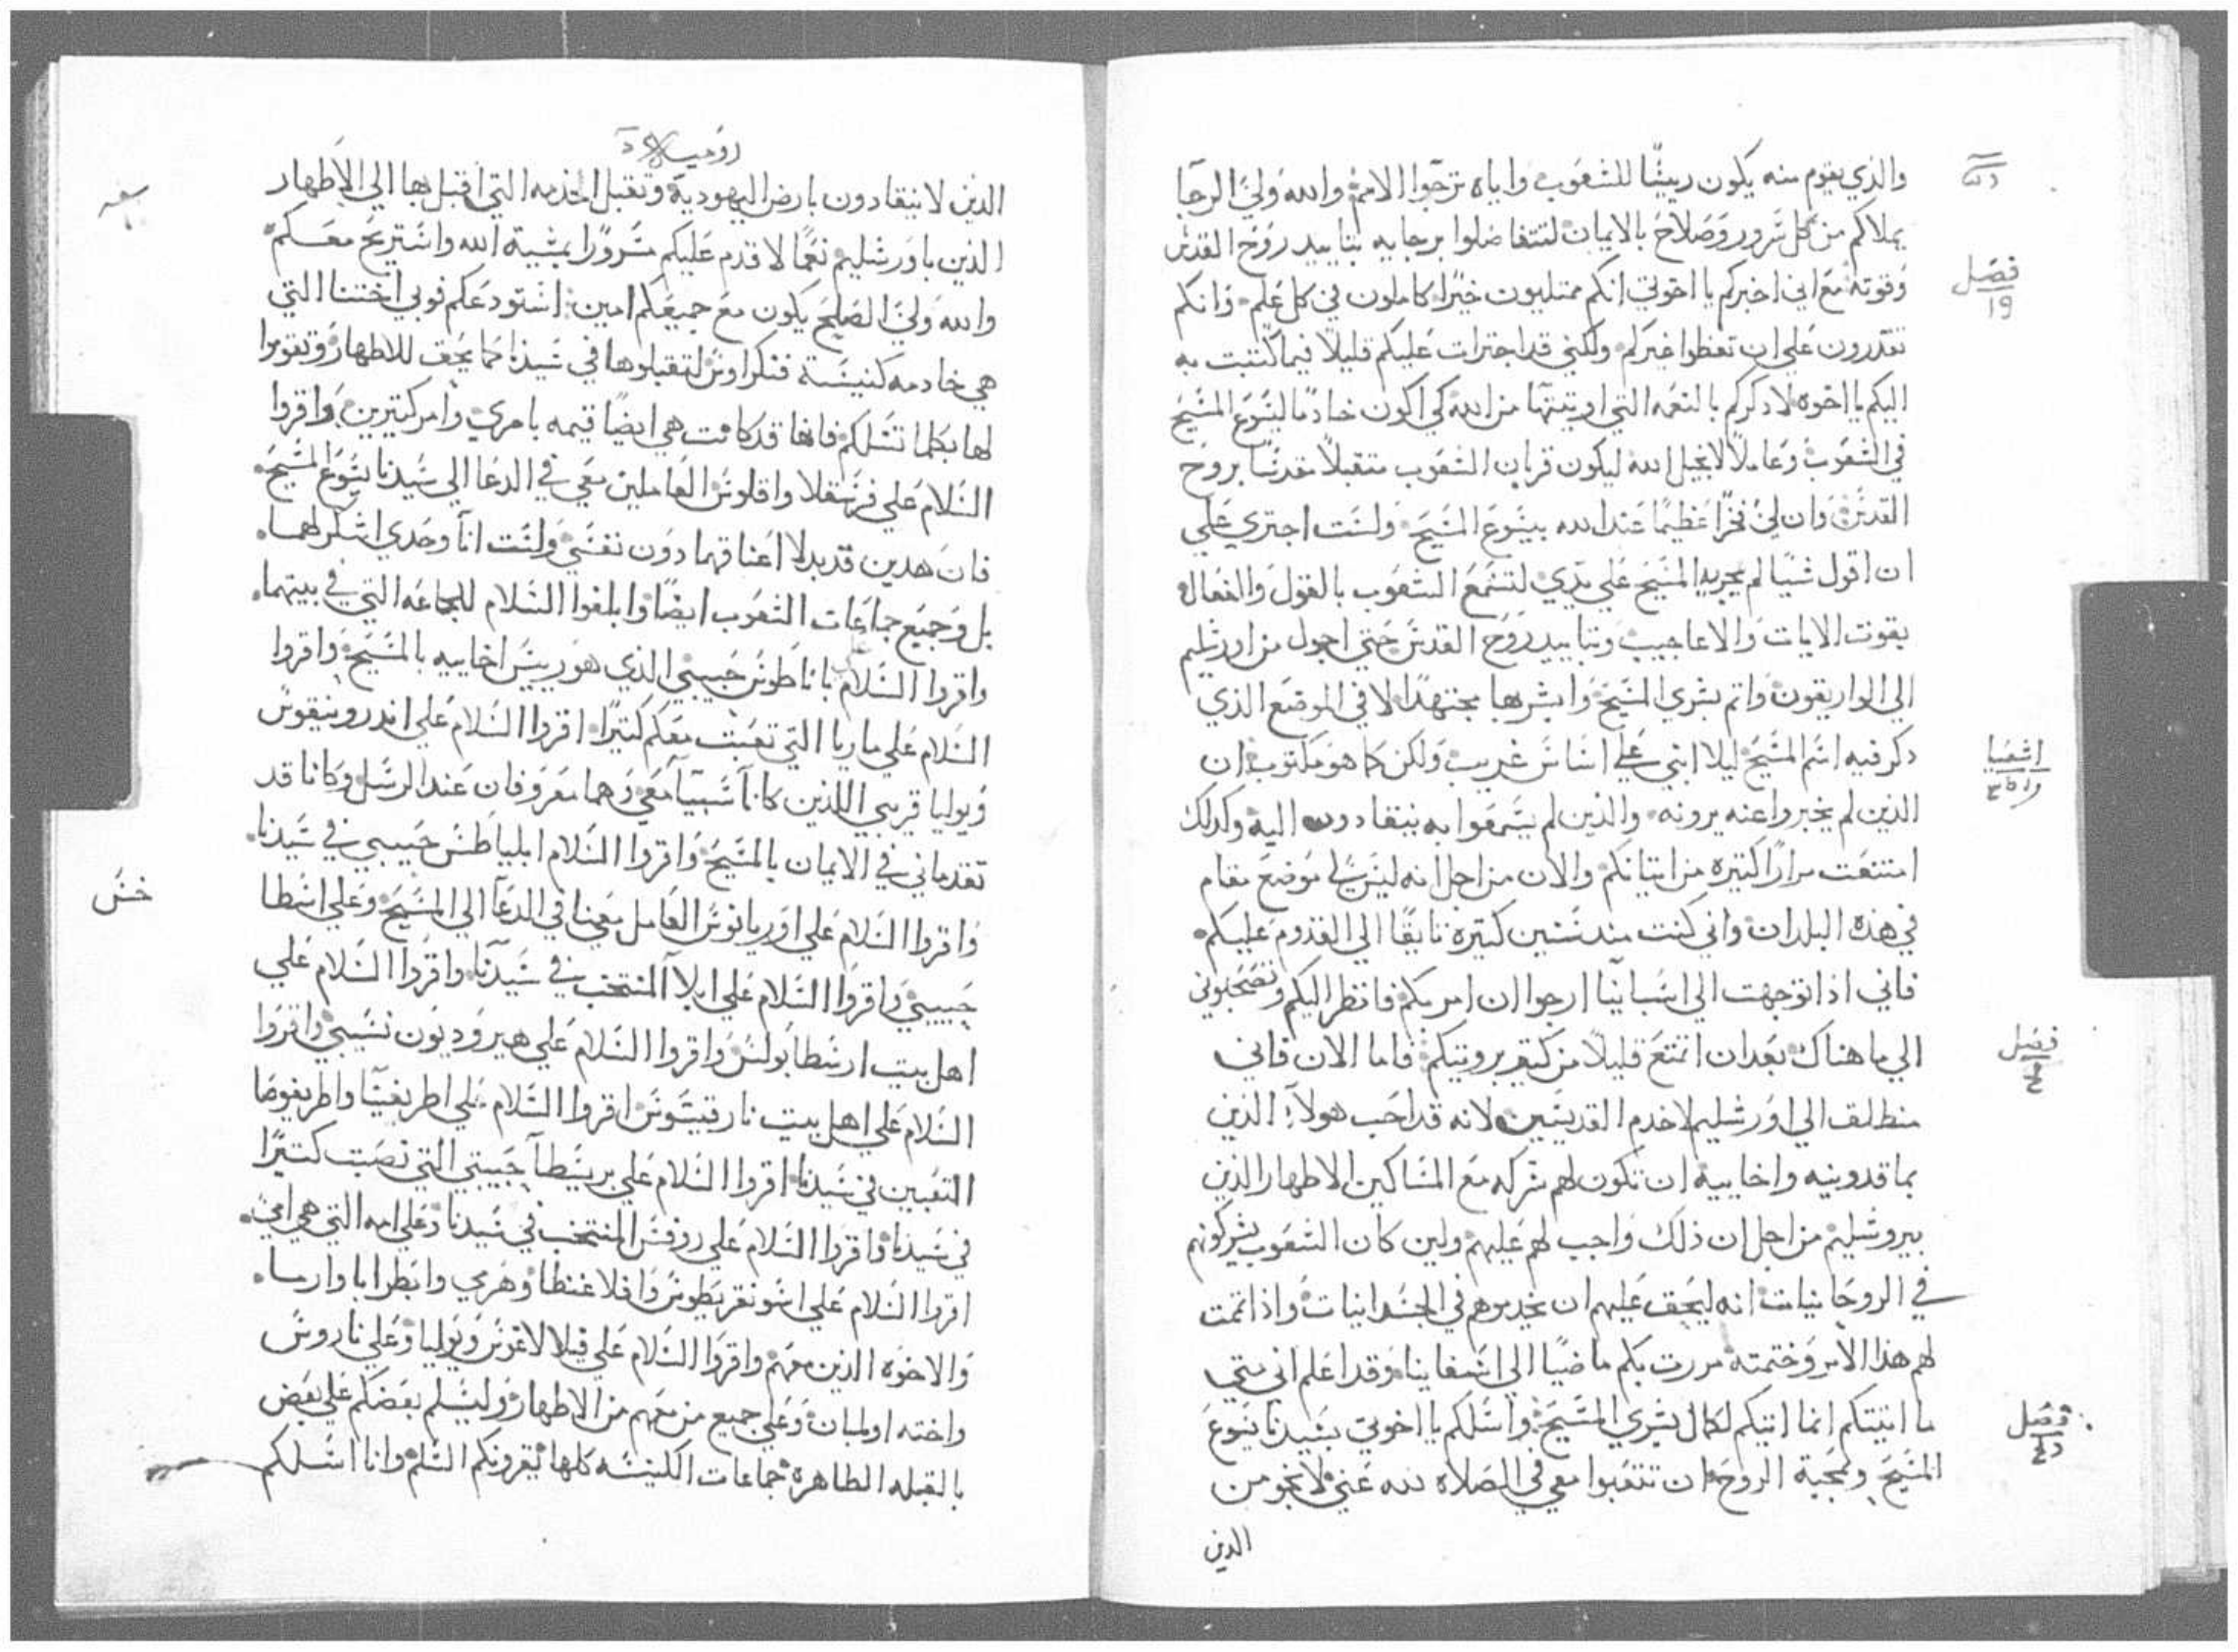 والذي يقوم منه يكون رييسًا للشعوب واياه ترجوا الامم والله ولي الرجا
يملاكم من كل سرور وصلاح بالايمان لتتفاضلوا برجايه بتاييد روح القدس
فصل
19
وقوته مع اني اخبركم يا اخوتي انكم ممتليون خيرًا كاملون في كل علم وانكم
تقدرون على ان تعظوا غيركم ولكني قد اجترات عليكم قليلًا فيما كتبت به
اليكم يا اخوه لادكركم بالنعمه التي اوتيتها من الله كي اكون خادمًا ليسوع المسيح
في الشعوب وعاملًا لانجيل الله ليكون قربان الشعوب متقبلًا مقدسًا بروح
القدس وان لي فخرًا عظيمًا عند الله بيسوع المسيح ولست اجتري علي
ان اقول شيًا لم يجريه المسيح علي يدي لتسمع الشعوب بالقول والفعال
بقوت الايات والاعاجيب وبتاييد روح القدس حتي اجول من اورشليم
الي الواريقون واتم بشري المسيح وابشر بها مجتهدًا لا في الموضع الذي
اشعيا
دكر فيه اسم المسيح ليلا ابني علي اساس غريب ولكن كما هو مكتوب ان
الذين لم يخبروا عنه يرونه والذين لم يسمعوا به ينقادون اليه وكدلك
امتنعت مرارًا كثيره من اتيانكم والان من اجل انه ليس لي موضع مقام
في هذه البلدان واني كنت مند سنين كتيرة تايقًا الي القدوم عليكم
فاني اذا توجهت الي اسبانيا ارجوا ان امر بكم فانظر اليكم وتصحبوني
فصل
الي ما هناك بعد ان اتمتع قليلًا من كتير برويتكم فاما الان فاني
منطلق الي اورشليم لاخدم القديسين لانه قد احب هولاء الذين
بماقدونيه واخاييه ان تكون لهم شركه مع المساكين الاطهار الذين
بيروشليم من اجل ان ذلك واجب لهم عليهم ولين كان الشعوب يشركونهم
في الروحانيات انه ليحق عليهم ان يخدموهم في الجسدانيات واذا تممت
لهم هذا الامر وختمته مررت بكم ماضيًا الي اسفانيا وقد اعلم اني متي
فصل
ما اتيتكم انما اتيكم لكمال بشري المسيح واسلكم يا اخوتي بسيدنا يسوع
المسيح وبمحبة الروح ان تتعبوا معي في الصلاه لله عني لانجو من
الذين
روميه
الذين لا ينقادون بارض اليهودية وتقبل الخدمه التي اقبل بها الي الاطهار
الذين باورشليم نعمًا لاقدم عليكم مسرورًا بمشية الله واستريح معكم
والله ولي الصلح يكون مع جميعكم امين استودعكم فوبي اختنا التي
هي خادمه كنيسة قنكراوس لتقبلوها في سيدنا كما يحق للاطهار وتقوموا
لها بكلما تسلكم فانها قد كانت هي ايضًا قيمه بامري وامر كتيرين واقروا
السلام علي فرسقلا واقلوس العاملين معي في الدعا الي سيدنا يسوع المسيح
فان هدين قد بدلا اعناقهما دون نفسي ولست انا وحدي اشكر لهما
بل وجميع جماعات الشعوب ايضًا وابلغوا السلام للجماعه التي في بيتهما
واقروا السلام باناطوس حبيبي الذي هو رييس اخاييه بالمسيح واقروا
السلام علي ماريا التي تعبت معكم كثيرًا اقروا السلام علي اندرونيقوس
ويوليا قريبي اللذين كانا سبيا معي وهما معروفان عند الرسل وكانا قد
تقدماني في الايمان بالمسيح واقروا السلام ابلياطس حبيبي في سيدنا
خس
واقروا السلام علي اوريانوس العامل معنا في الدعا الي المسيح وعلي اسطا
حبيبي واقروا السلام علي ابلا المنتخب في سيدنا واقروا السلام علي
اهل بيت ارسطابولس واقروا السلام علي هيروديون نسيبي واقروا
السلام علي اهل بيت نارقيسوس اقروا السلام علي اطريفينا واطريفوسا
التعبين في سيدنا اقروا السلام علي برسيطا حبيبتي التي نصبت كتيرًا
في سيدنا واقروا السلام علي روفس المنتخب في سيدنا وعلي امه التي هي امي
اقروا السلام علي اسونقريطوس وافلاغنطا وهرمي وابطرابا وارما
والاخوه الذين معهم واقروا السلام علي فيلالاغوس ويوليا وعلي ناروس
واخته اولمبان وعلي جميع من معهم من الاطهار وليسلم بعضكم علي بعض
بالقبله الطاهرة جماعات الكنيسه كلها تقرونكم السلم وانا اسلكم